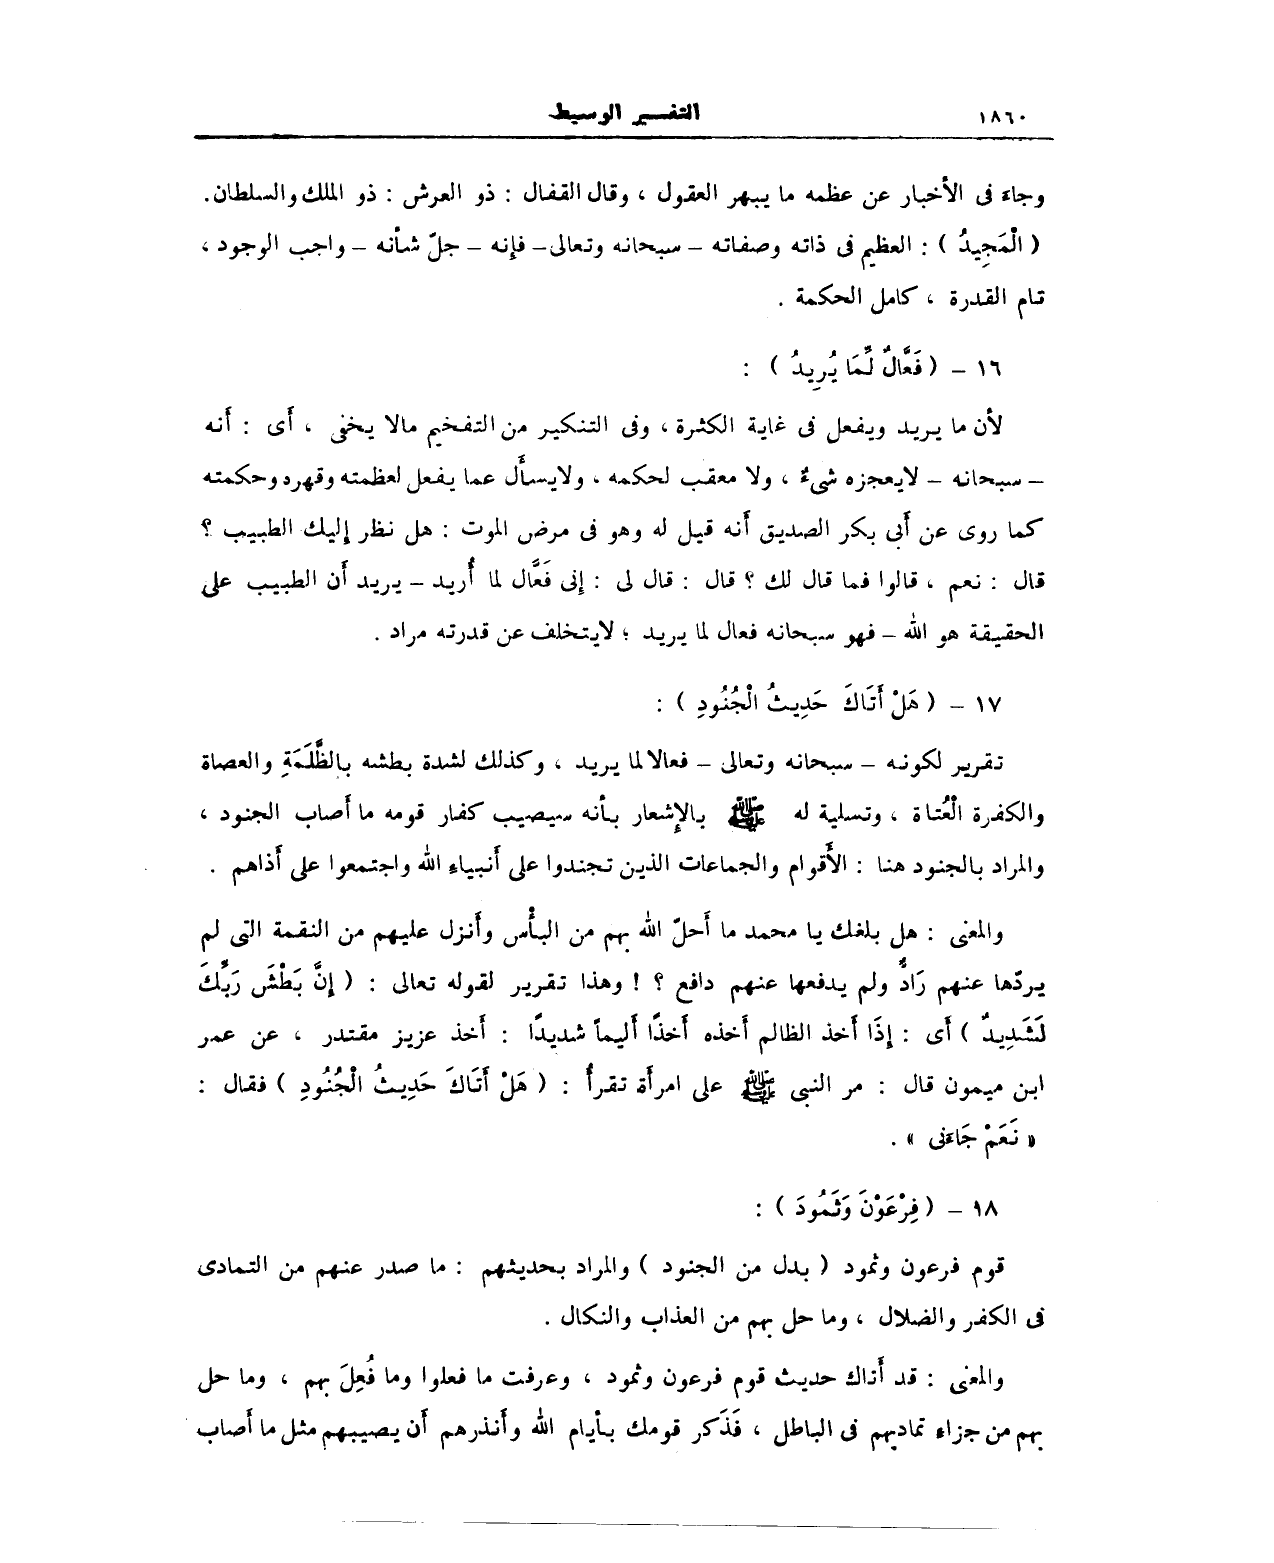 ١٨٦٠ التفسير الوسيط
وجاءَ فى الأخبار عن عظمه ما يبهر العقول ، وقال القفال : ذو العرش : ذو الملك والسلطان.
( الْمَجِيدُ ) : العظيم فى ذاته وصفاته – سبحانه وتعالى– فإنه – جلّ شأنه – واجب الوجود ،
تام القدرة ، كامل الحكمة .
١٦ – ( فَعَّالٌ لِّمَا يُرِيدُ ) :
لأن ما يريد ويفعل فى غاية الكثرة ، وفى التنكير من التفخيم مالا يخفى ، أَى : أَنه
– سبحانه – لايعجزه شىءٌ ، ولا معقب لحكمه ، ولايسأَل عما يفعل لعظمته وقهره وحكمته
كما روى عن أَبى بكر الصديق أَنه قيل له وهو فى مرض الموت : هل نظر إليك الطبيب ؟
قال : نعم ، قالوا فما قال لك ؟ قال : قال لى : إِنى فَعَّال لما أُريد – يريد أَن الطبيب على
الحقيقة هو الله – فهو سبحانه فعال لما يريد ؛ لايتخلف عن قدرته مراد .
١٧ – ( هَلْ أَتَاكَ حَدِيثُ الْجُنُودِ ) :
تقرير لكونه – سبحانه وتعالى – فعالا لما يريد ، وكذلك لشدة بطشه بالظَّلَمَةِ والعصاة
والكفرة الْعُتاة ، وتسلية له ﷺ بالإِشعار بأنه سيصيب كفار قومه ما أَصاب الجنود ،
والمراد بالجنود هنا : الأَقوام والجماعات الذين تجندوا على أَنبياءِ الله واجتمعوا على أَذاهم .
والمعنى : هل بلغك يا محمد ما أَحلّ الله بهم من البأْس وأَنزل عليهم من النقمة التى لم
يردّها عنهم رَادٌّ ولم يدفعها عنهم دافع ؟ ! وهذا تقرير لقوله تعالى : ( إِنَّ بَطْشَ رَبِّكَ
لَشَدِيدٌ ) أَى : إِذَا أَخذ الظالم أَخذه أَخذًا أَليماً شديدًا : أَخذ عزيز مقتدر ، عن عمر
ابن ميمون قال : مر النبى ﷺ على امرأَة تقرأُ : ( هَلْ أَتَاكَ حَدِيثُ الْجُنُودِ ) فقال :
« نَعَمْ جَاءَنى » .
١٨ – ( فِرْعَوْنَ وَثَمُودَ ) :
قوم فرعون وثمود ( بدل من الجنود ) والمراد بحديثهم : ما صدر عنهم من التمادى
فى الكفر والضلال ، وما حل بهم من العذاب والنكال .
والمعنى : قد أَتاك حديث قوم فرعون وثمود ، وعرفت ما فعلوا وما فُعِلَ بهم ، وما حل
بهم من جزاءِ تماديهم فى الباطل ، فَذَكر قومك بأَيام الله وأَنذرهم أَن يصيبهم مثل ما أَصاب